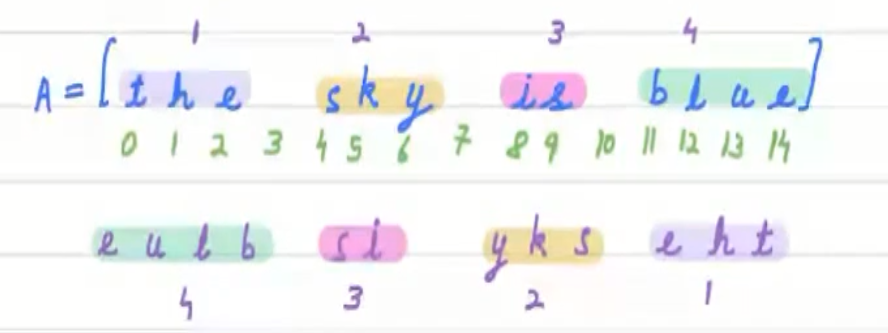 1 2 3 4
A = [ t h e s k y i s b l u e ]
0 1 2 3 4 5 6 7 8 9 10 11 12 13 14
e u l b s i y k s e h t
4 3 2 1